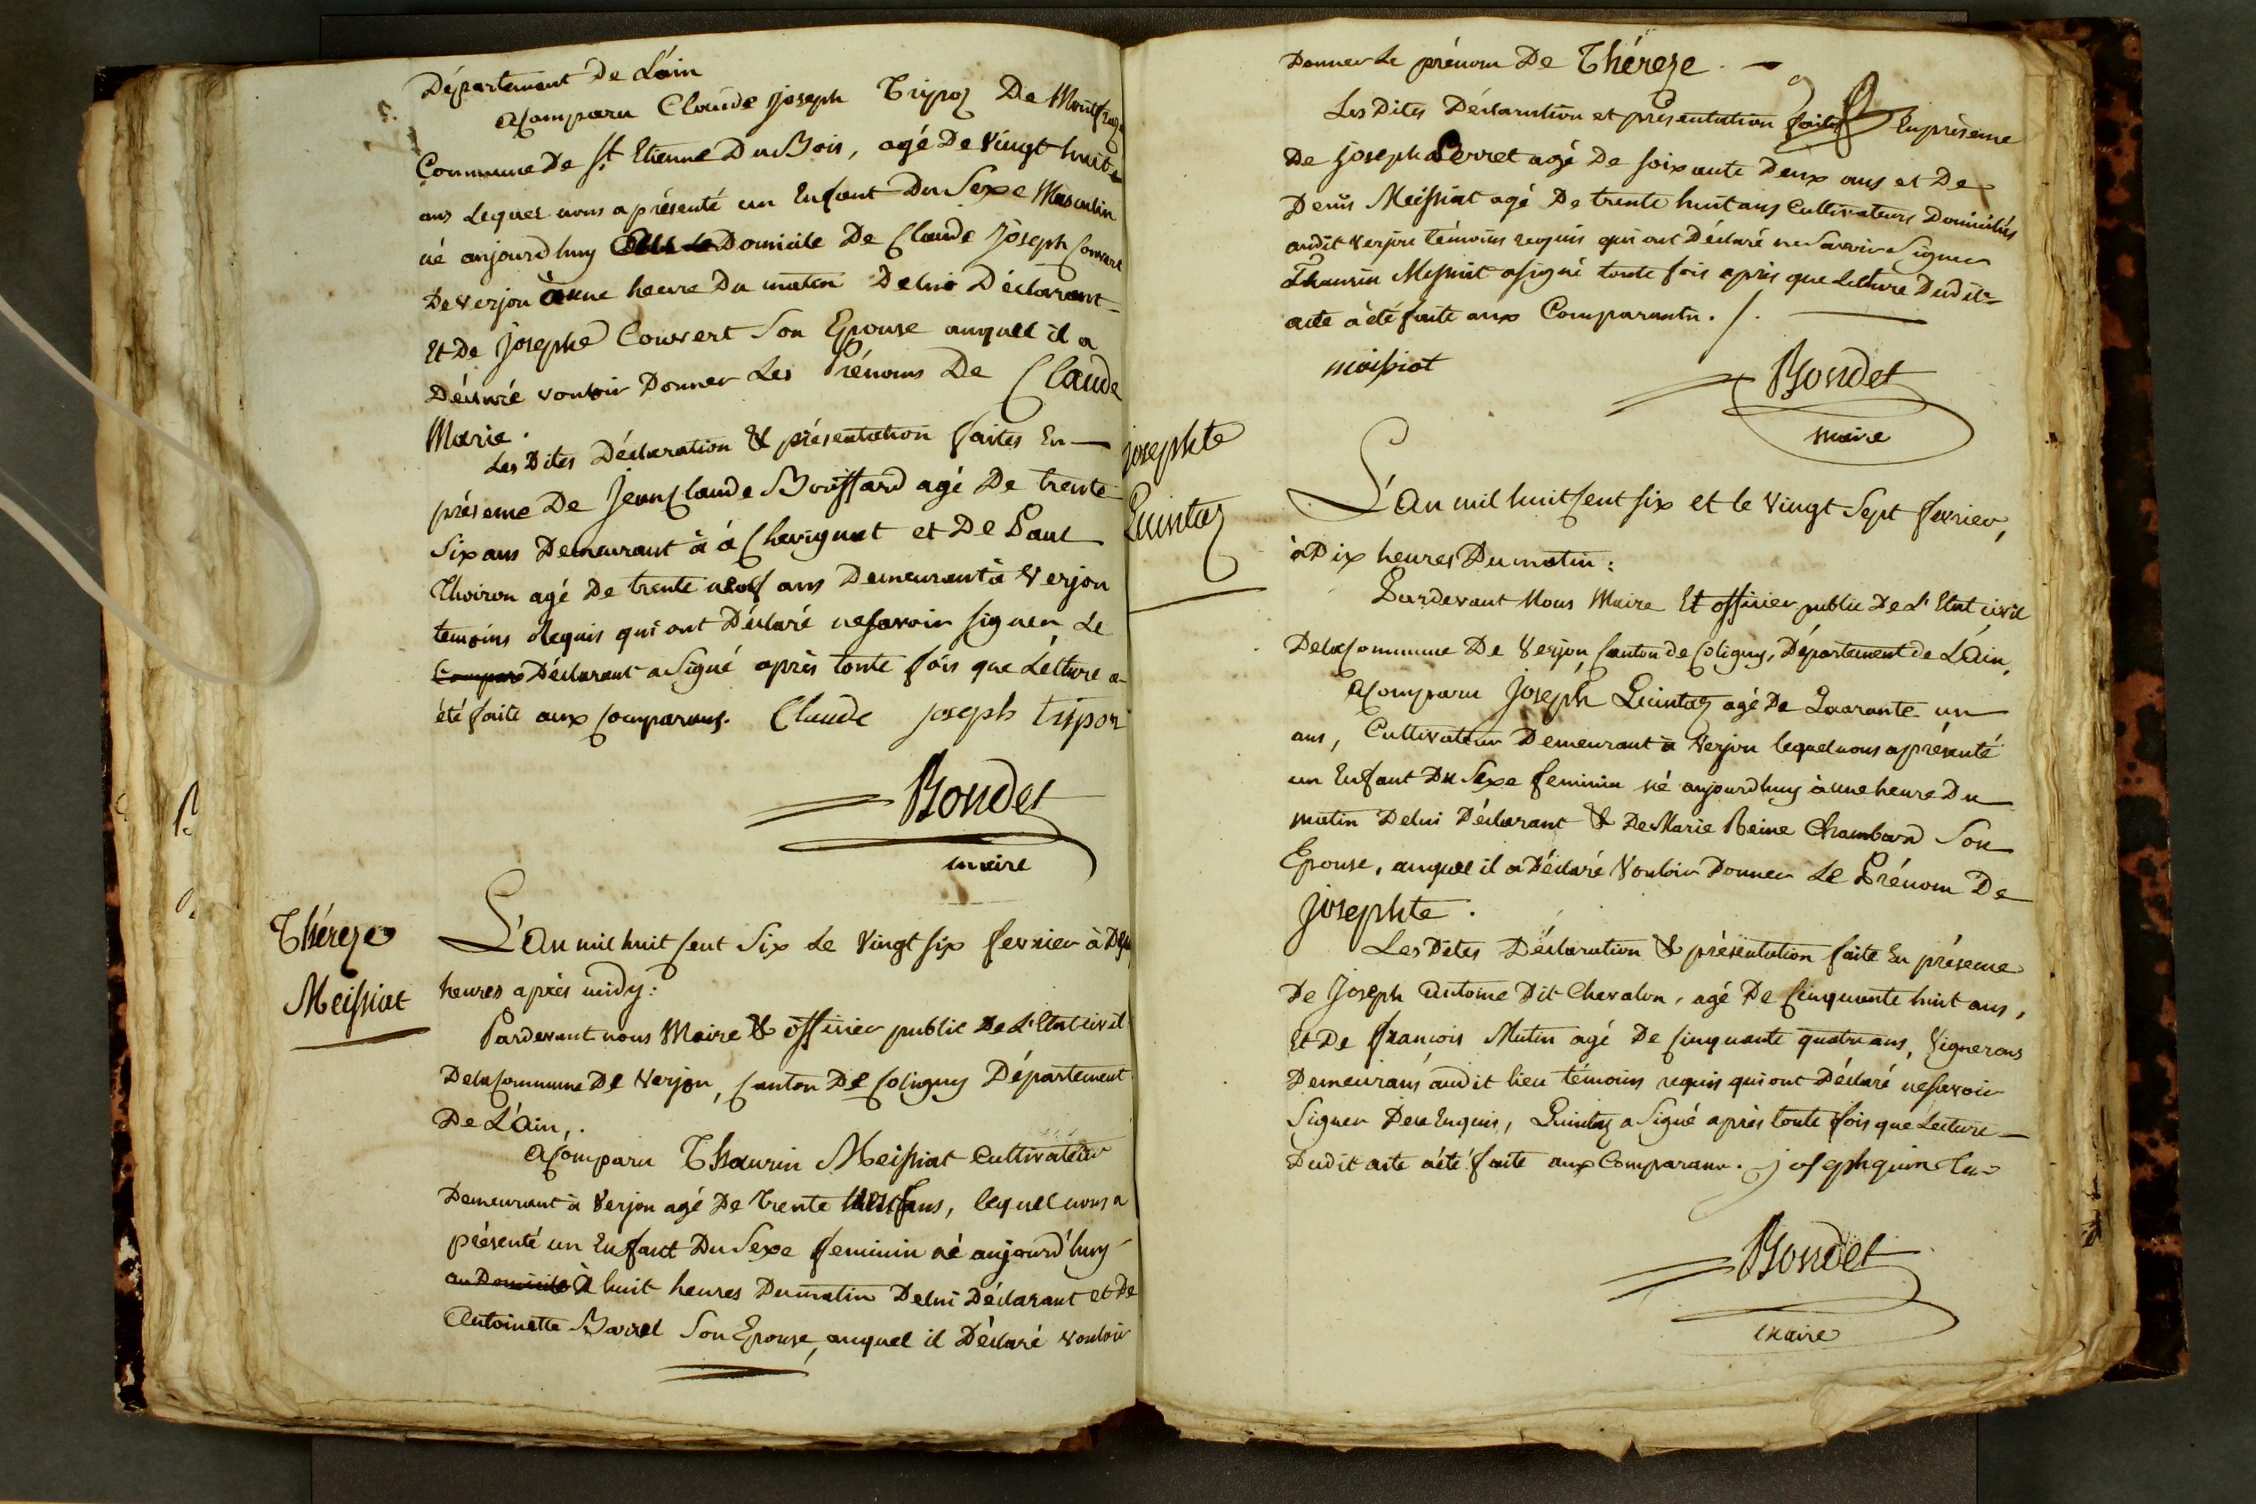 Département De L'ain
a Comparu Claude Joseph Tripoz De
Commune De St Etienne Du Bois, agé De Vingt huit
ans Lequel nous a présenté un Enfant Du Sexe Masculin
né aujourdhuy Domicile De Claude Joseph Convert
De verjon à une heure Du matin De lui Déclarant
Et De Josephe Convert Son Epouse auquel il a
Déclaré vouloir Donner Les Prénoms De Claude
Marie.
Les Dites Déclaration & présentation faites En
présence De Jean Claude Bouffard agé De trente
Six ans Demeurant à à Chevignat et De Paul
Thoiron agé De trente neuf ans Demeurant à Verjon
temoins Requis qui ont Déclaré ne Savoir signer Le
Compar Déclarant a Signé après toute fois que Lecture a
été faite aux Comparans. Claude joseph tripoz
Bondet
maire
Thérèze
Meissiat
L'an mil huit Cent Six Le Vingt six fevrier à Deux
heures après midy:
Pardevant nous Maire & officier public De L'Etat civil
De la Commune De Verjon, Canton De Coligny Département
De L'Ain,.
a Comparu Thaurin Meissiat Cultivateur
Demeurant à Verjon agé De trente neuf ans, lequel nous a
présenté un Enfant Du Sexe feminin né aujourd'huy
au Domicile à huit heures Du matin De lui Déclarant et De
Antoinette Barrel Son Epouse, auquel il Déclaré vouloir
Donner Le prénom De Thérèze.
Les Dites Déclaration et présentation faites En présence
De Joseph Perret agé De soixante Deux ans et De
Denis Meissiat agé De trente huit ans Cultivateurs Domiciliés
audit Verjon témoins requis qui ont Déclaré ne Savoir Signer
Thaurin Meissiat a signé toute fois après que Lecture Dudit
acte à été faite aux Comparants.
maissiat
Bondet
maire
Josephte
Quintaz
L'an mil huit Cent six et le Vingt Sept fevrier,
à Dix heures Du matin:
Pardevant Nous Maire Et officier public De L'Etat civil
De la Commune De Verjon, Canton de Coligny, Département de L'Ain,
a Comparu Joseph Quintaz agé De Quarante un
ans, Cultivateur Demeurant à Verjon lequel nous a présenté
un Enfant Du Sexe feminin né aujourdhuy à une heure Du
matin De lui Déclarant & De Marie Reine Chambard Son
Epouse, auquel il a Déclaré Vouloir Donner Le Prénom De
Josephte.
Les Dites Déclaration & présentation faite En présence
De Joseph Antoine Dit Chevalon, agé De Cinquante huit ans,
Et De françois Mutin agé De Cinquante quatre ans, Vignerons
Demeurans audit lieu témoins requis qui ont Déclaré ne Savoir
Signer De ce Enquis, Quintaz a Signé après toute fois que Lecture
Dudit acte a été faite aux Comparans. joseph quinta
Bondet
maire